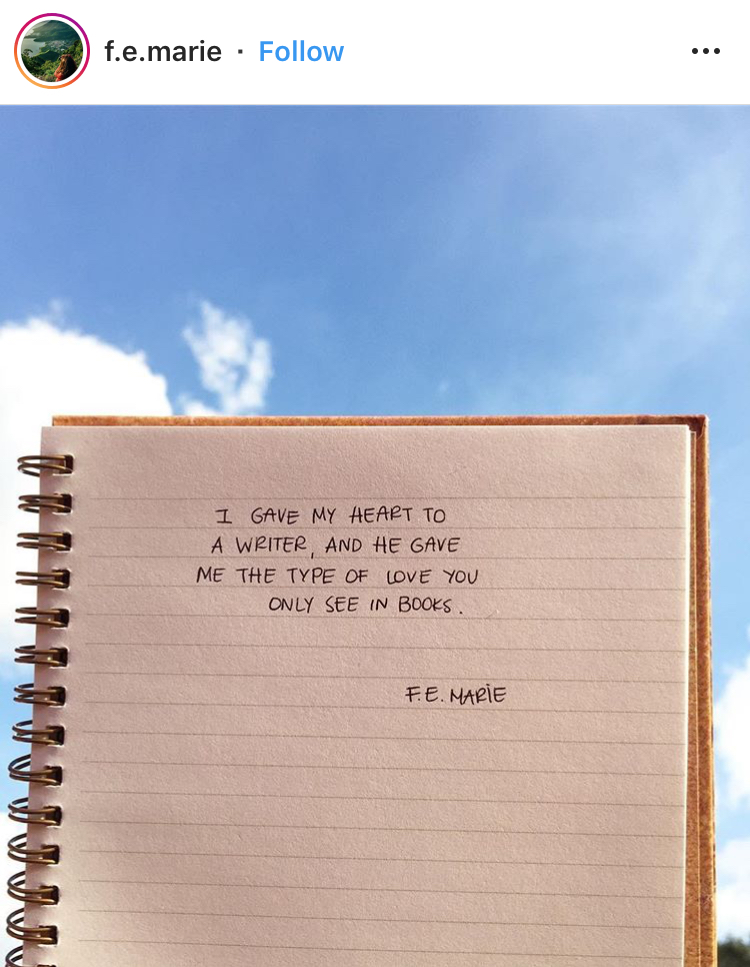 f.e.marie · Follow
I GAVE MY HEART TO
A WRITER, AND HE GAVE
ME THE TYPE OF LOVE YOU
ONLY SEE IN BOOKS.
F.E. MARIE